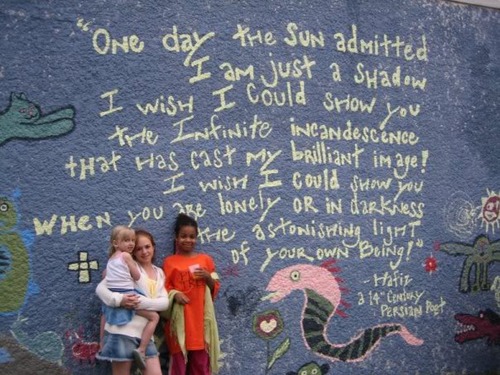 "One day the Sun admitted
I am just a shadow
I wish I could show you
the Infinite incandescence
that has cast my brilliant image!
I wish I could show you
when you are lonely or in darkness
the astonishing light
of your own Being!"
- Hafiz
a 14th Century
Persian Poet